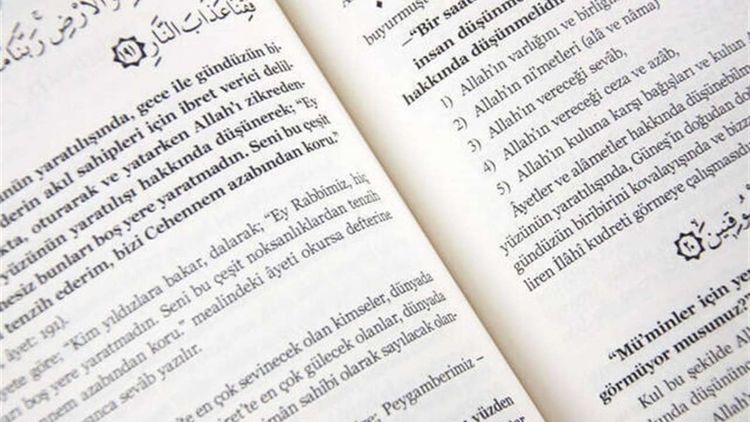 فَقِنَا عَذَابَ النَّارِ ﴿١٩١﴾
gece ile gündüzün
yaratılışında,
derin akıl sahipleri için ibret verici delil-
oturarak ve yatarken Allah'ı zikreden-
yüzünün yaratılışı hakkında düşünerek; "Ey
bunları boş yere yaratmadın. Seni bu çeşit
tenzih ederim, bizi Cehennem azabından koru."
âyet: 191).
göre: "Kim yıldızlara bakar, dalarak; "Ey Rabbimiz, hiç
boş yere yaratmadın. Seni bu çeşit noksanlıklardan tenzih
azabından koru." mealindeki âyeti okursa defterine
sevâb yazılır.
en çok sevinecek olan kimseler, dünyada
en çok gülecek olanlar, dünyada
îmân sahibi olarak sayılacak olan-
Peygamberimiz –
yüzden
buyurmuş
–"Bir saat
insan düşünme
hakkında düşünmelidir
1) Allah'ın varlığını ve birliğin
2) Allah'ın ni'metleri (alâ ve nâma)
3) Allah'ın vereceği sevâb,
4) Allah'ın vereceği ceza ve azâb,
5) Allah'ın kuluna karşı bağışları ve kulun
Âyetler ve alâmetler hakkında düşünebilm
yüzünün yaratılışında, Güneş'in doğudan do
gündüzün biribirini kovalayışında ve bizza
liren İlâhî kudreti görmeye çalışması
﴿٢٠﴾
"Mü'minler için ye
görmüyor musunuz?
Kul bu şekilde A
hakkında düşünüm